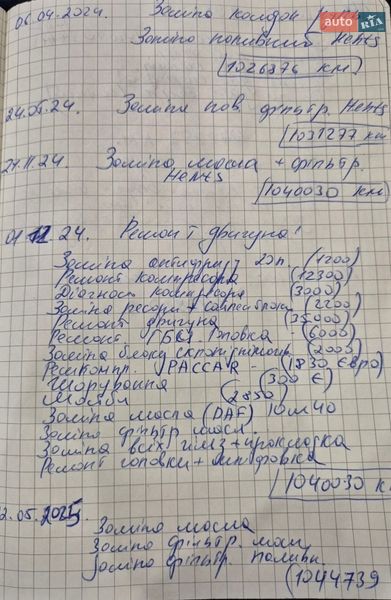 06.04.2024. Заміна колодок
auto RIA
Заміна паливний Hengs
1026376 км
24.05.24. Заміна пов. фільтр. Hengs
1031277 км
21.11.24. Заміна масла + фільтр.
Hengs
1040030 км
01 12.24. Ремонт двигуна!
Заміна антифриз 20л. (1200)
Ремонт компресора (12300)
Діагност компресора (3000)
Заміна ресори + сайлентблоки (2200)
Ремонт двигуна (35000)
Ремонт ГБЦ. головка (6000)
Заміна блоку (2000)
Ремкомпл. PACCAR - (1830 євро)
(300 €)
(2850)
Заміна масла (DAF) 10w40
Заміна фільтр масл.
Заміна всіх гілз + прокладка
Ремонт головки + шліфовка
1040030 к
2.05.2025
Заміна масла
Заміна фільтр. масл
Заміна фільтр. палив
(1044739